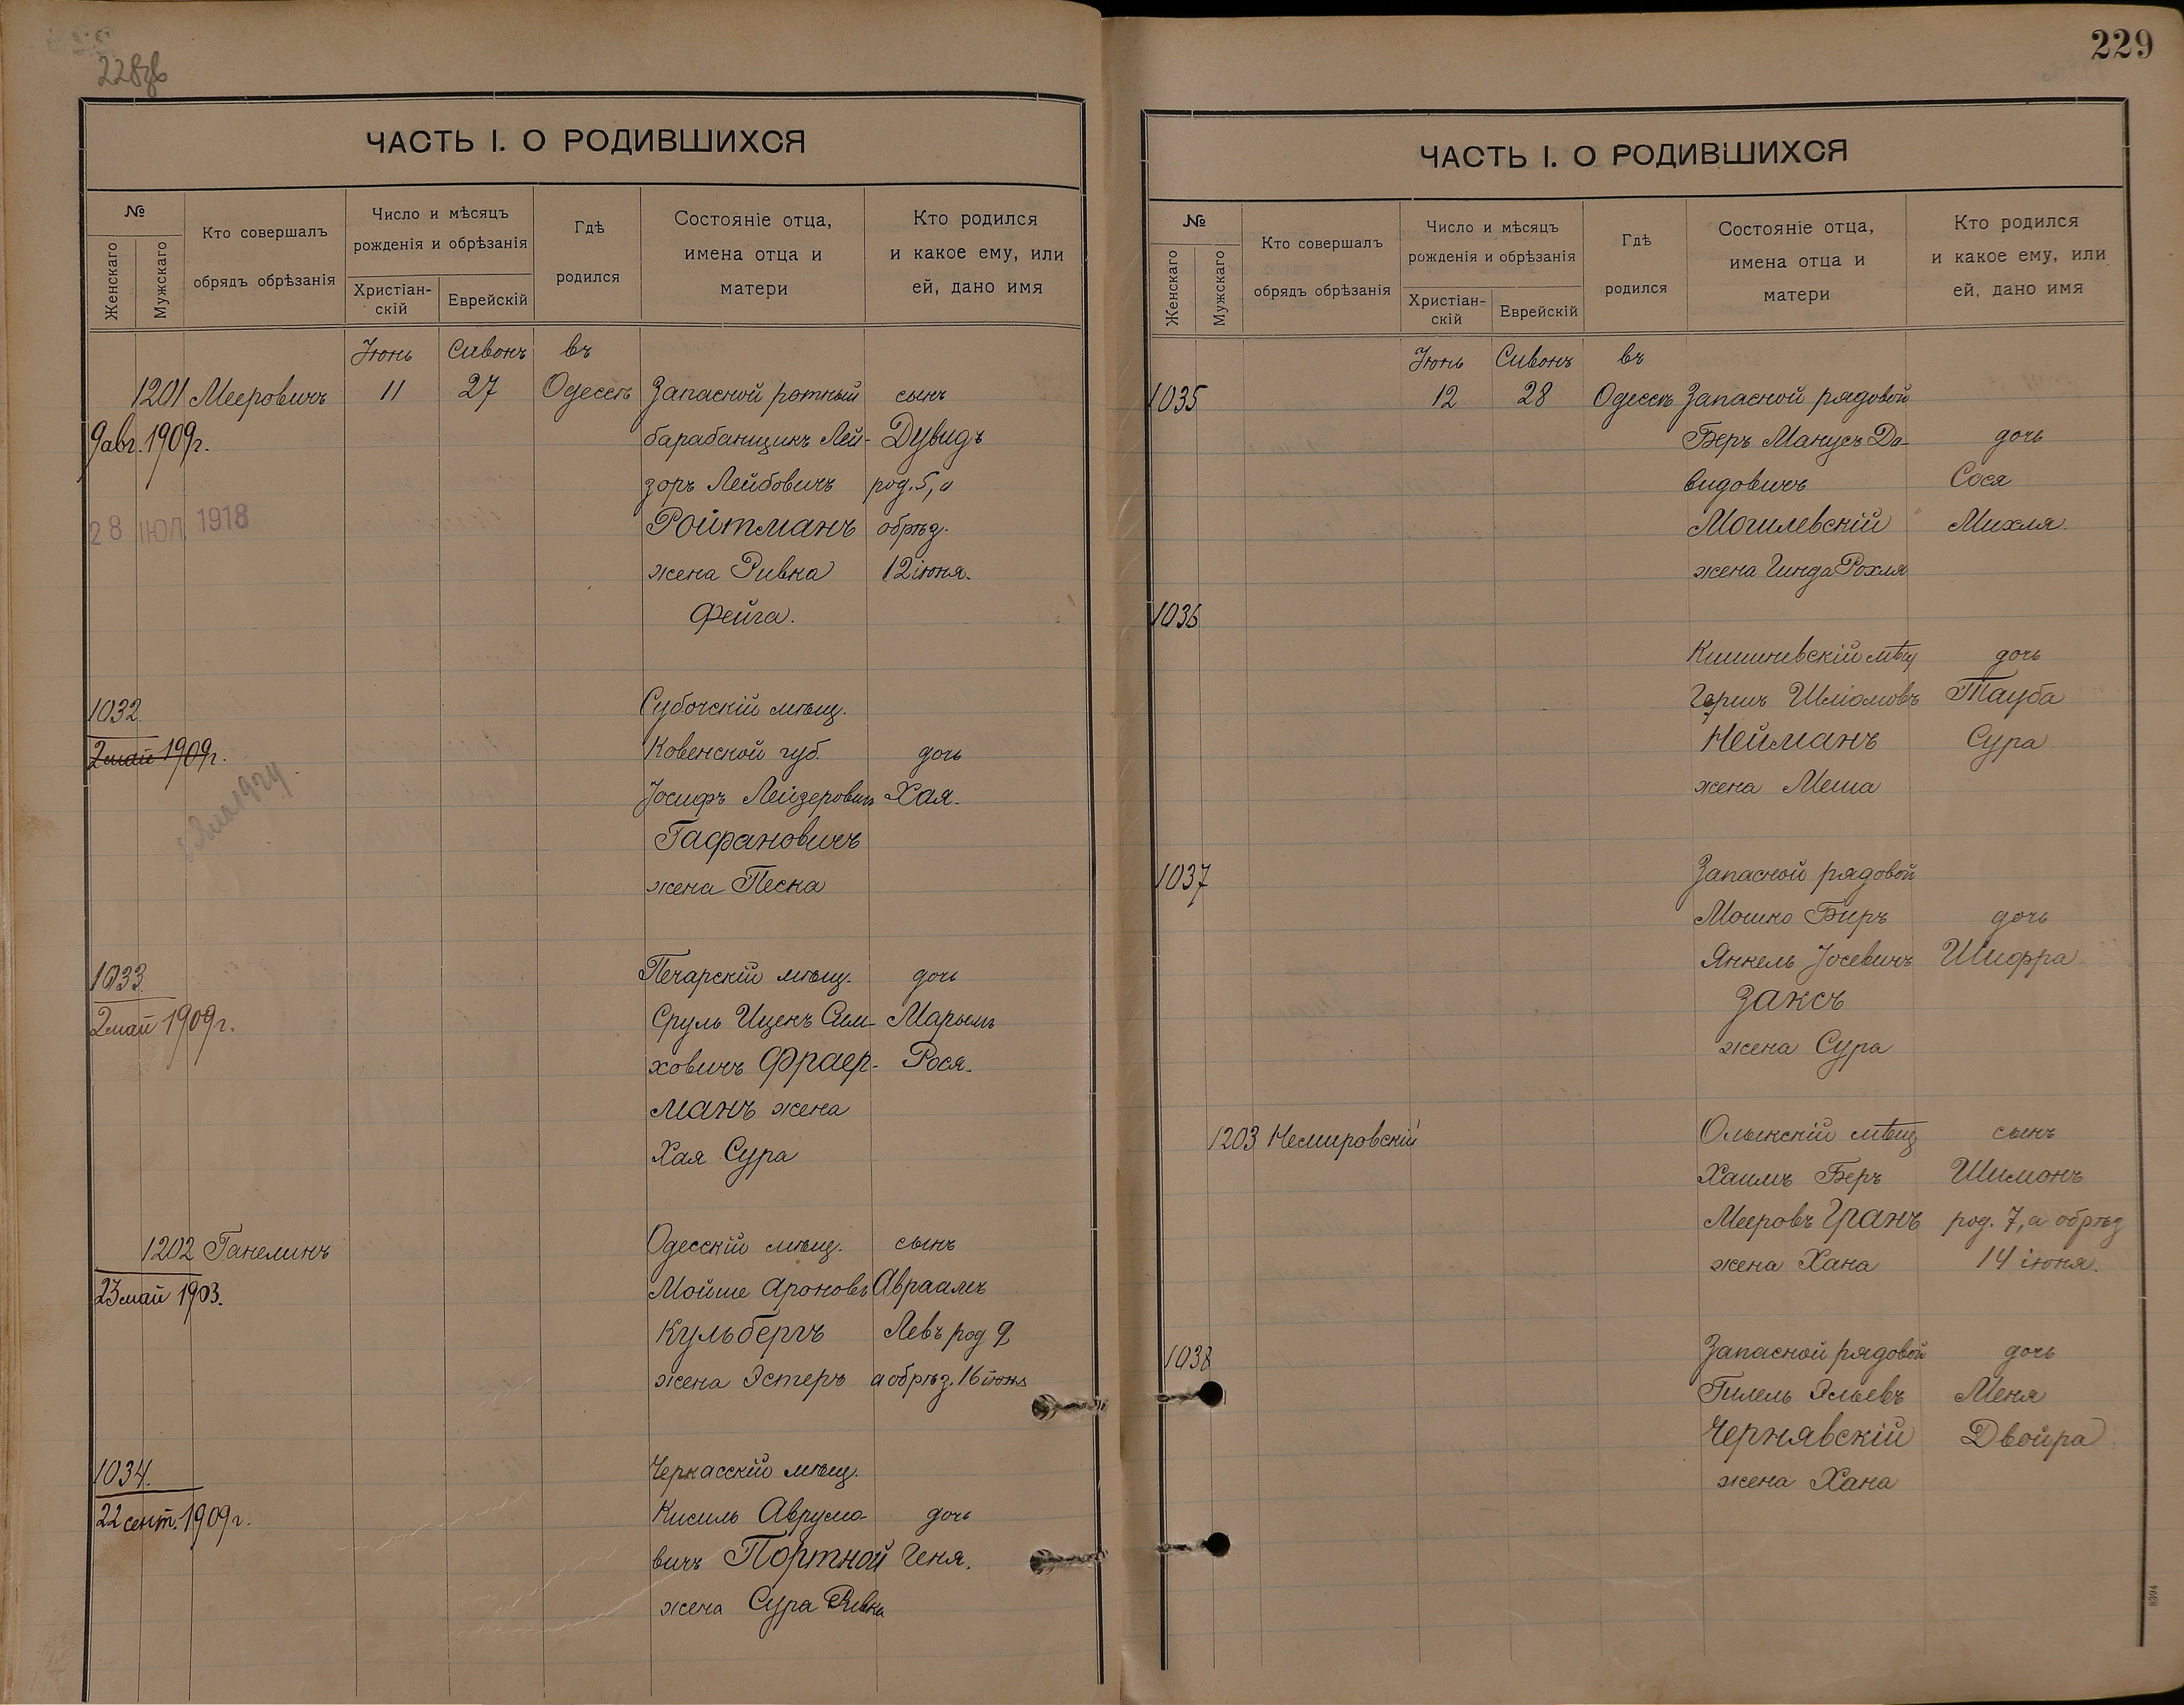 228об
ЧАСТЬ I. О РОДИВШИХСЯ
№
Женскаго
Мужскаго
Кто совершалъ
обрядъ обрѣзанія
Число и мѣсяцъ
рожденія и обрѣзанія
Христіан-
скій
Еврейскій
Гдѣ
родился
Состояніе отца,
имена отца и
матери
Кто родился
и какое ему, или
ей, дано имя
Іюнь Сивонъ въ
1201 Мееровичъ 11 27 Одессѣ Запасной ротный сынъ
9 авг. 1909г. барабанщикъ Лей- Дувидъ
зоръ Лейбовичъ род. 5, а
28 ІЮЛ 1918 Ройтманъ обрѣз.
жена Ривка 12 іюня.
Фейга.
1032 Субочскій мѣщ.
2 май 1909г. Ковенской губ. дочь
Іосифъ Лейзеровичъ Хая.
Гафановичъ
жена Песка
1033 Печарскій мѣщ. дочь
2 май 1909г. Сруль Ицекъ Сим- Марьемъ
ховичъ Фраер- Рося.
манъ жена
Хая Сура
1202 Ганелинъ Одесскій мѣщ. сынъ
23 май 1903. Мойше Ароновъ Авраамъ
Кульбергъ Левъ род 9
жена Эстеръ а обрѣз. 16 іюня
1034. Черкасскій мѣщ.
22 сент. 1909г. Кисиль Аврумо- дочь
вичъ Портной Геня.
жена Сура Ривка
229
ЧАСТЬ I. О РОДИВШИХСЯ
№
Женскаго
Мужскаго
Кто совершалъ
обрядъ обрѣзанія
Число и мѣсяцъ
рожденія и обрѣзанія
Христіан-
скій
Еврейскій
Гдѣ
родился
Состояніе отца,
имена отца и
матери
Кто родился
и какое ему, или
ей, дано имя
Іюнь Сивонъ въ
1035 12 28 Одессѣ Запасной рядовой
Беръ Манусъ Да- дочь
видовичъ Сося
Могилевскій Михля.
жена Гинда Рохля
1036
Кишиневскій мѣщ дочь
Гершъ Шліомовъ Тауба
Нейманъ Сура
жена Меша
1037 Запасной рядовой
Мошко Биръ дочь
Янкель Іосевичъ Шифра
Заксъ
жена Сура
1203 Немировскій Олыкскій мѣщ сынъ
Хаимъ Беръ Шимонъ
Мееровъ Гранъ род. 7, а обрѣз
жена Хана 14 іюня.
1038 Запасной рядовой дочь
Гилель Эльевъ Меня
Чернявскій Двойра
жена Хана